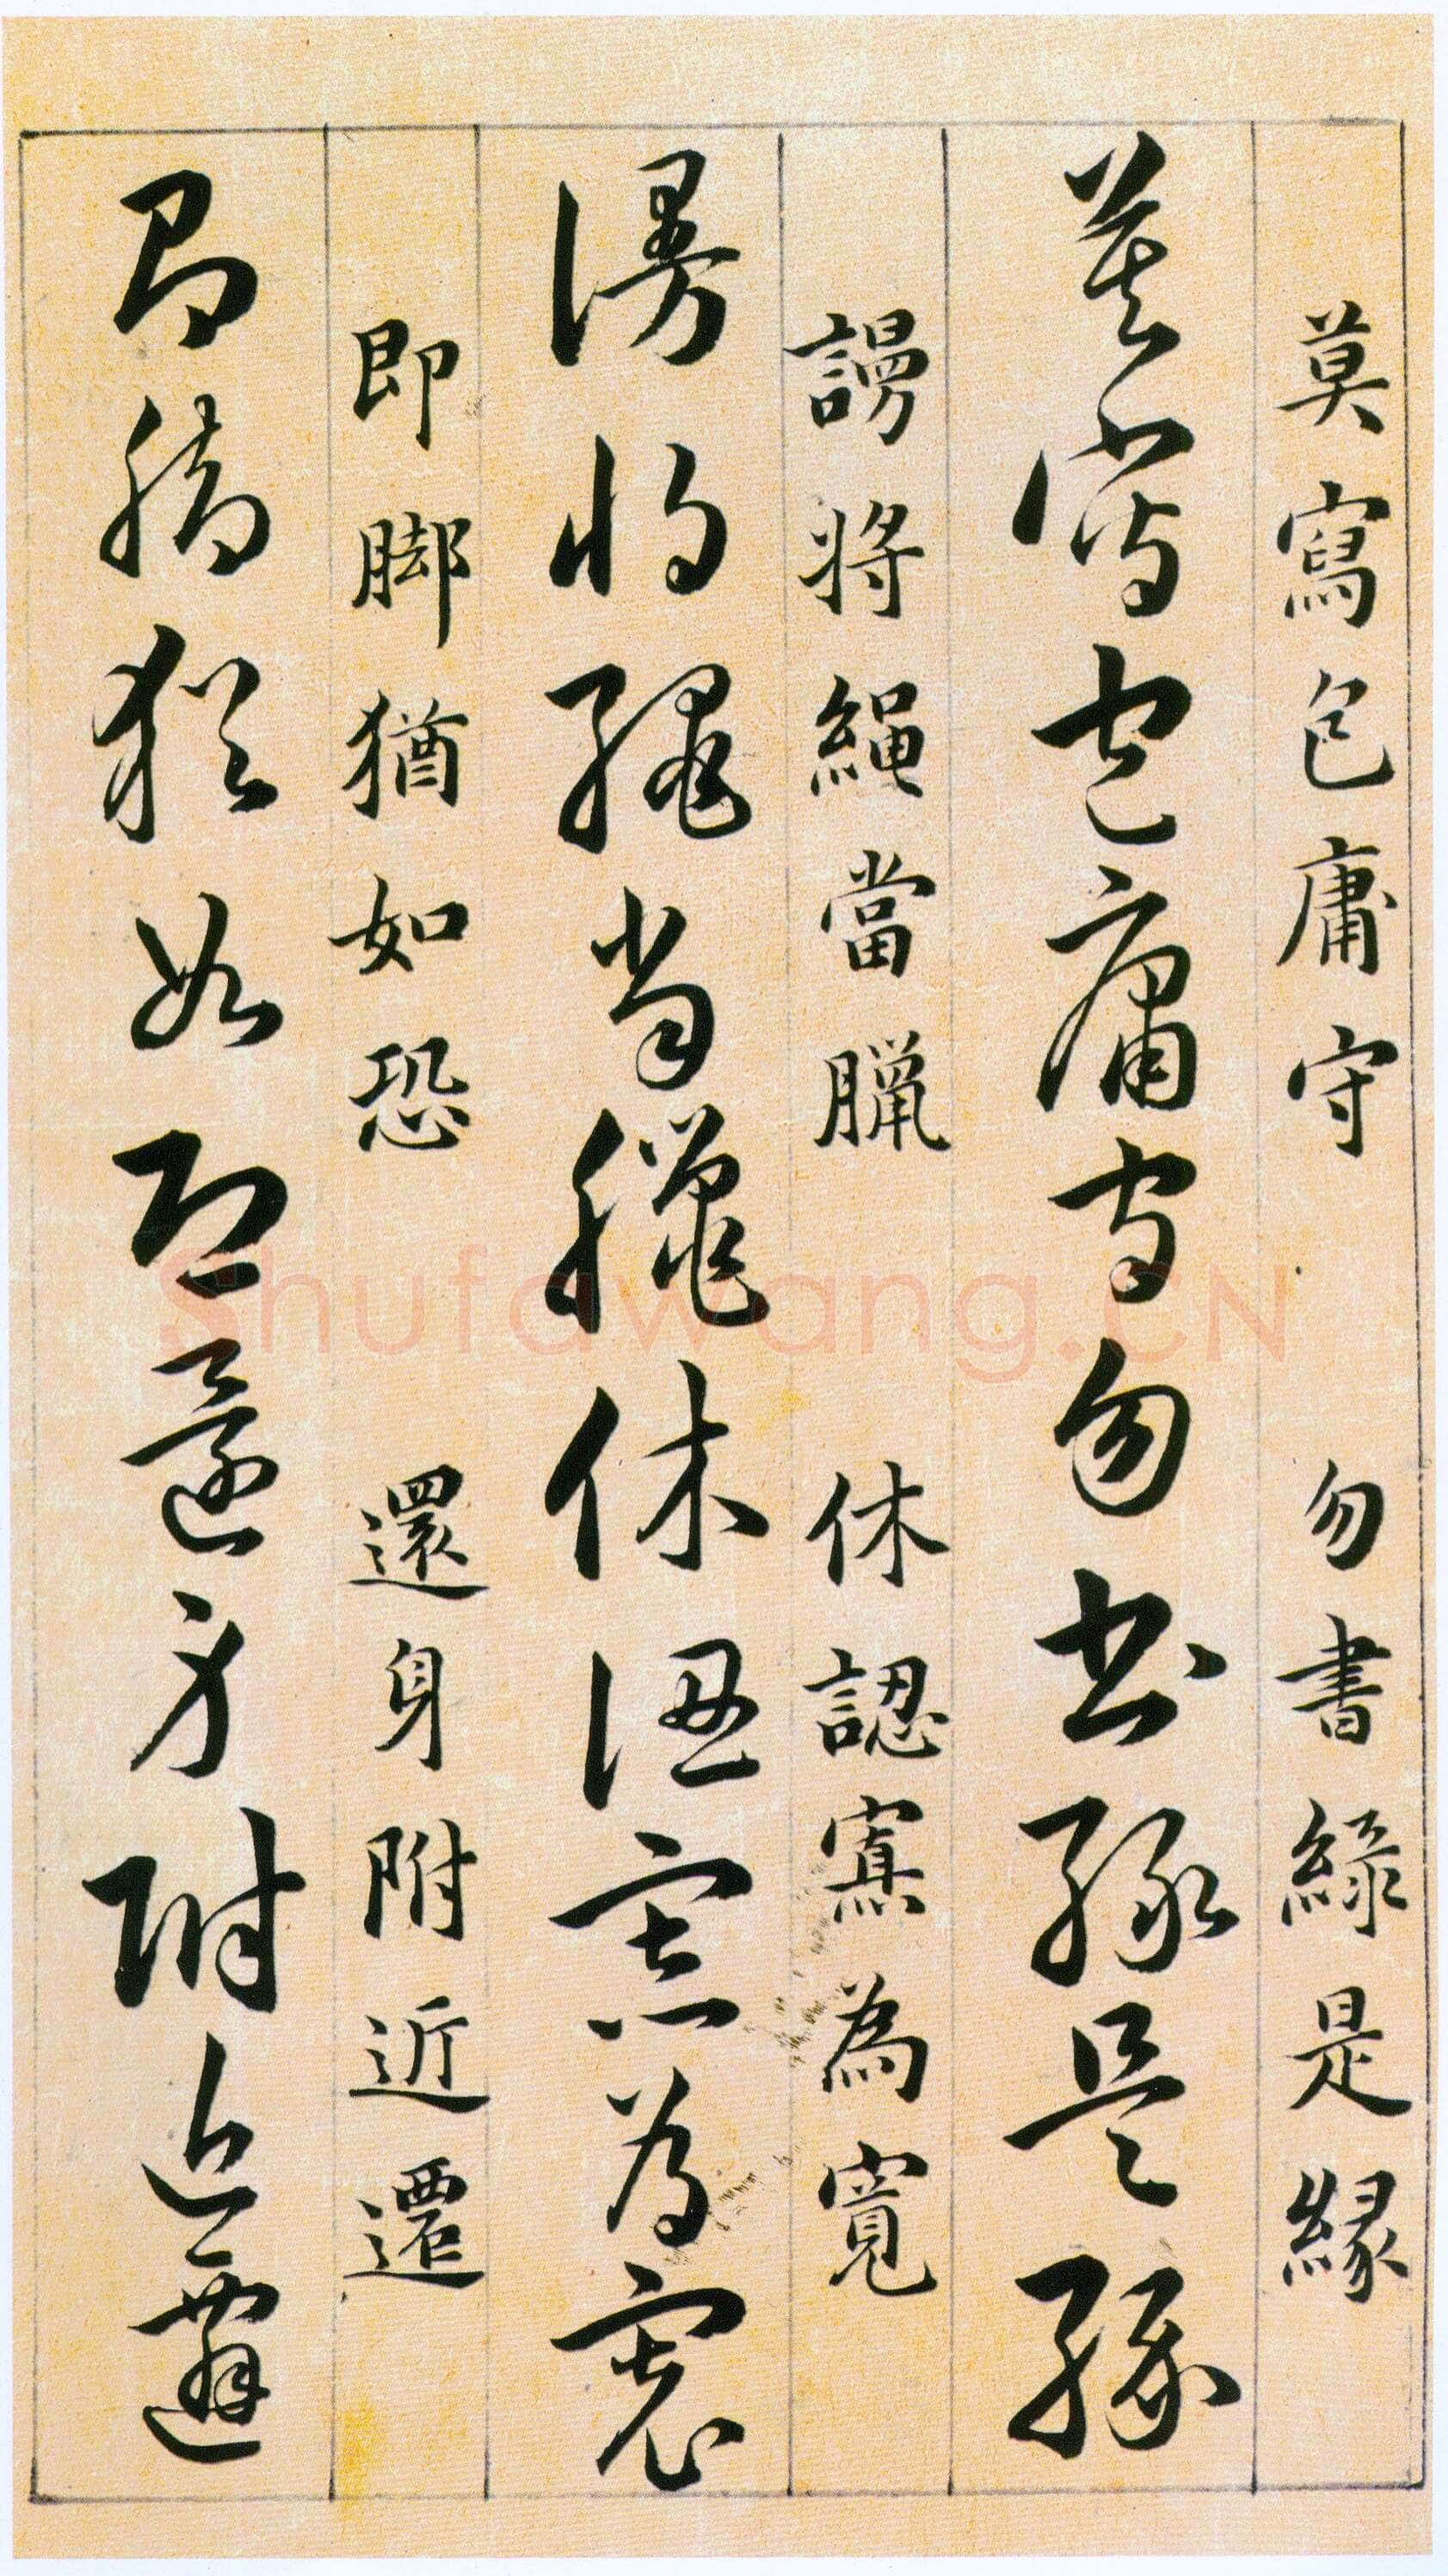 莫寫包庸守 勿書綠是緣
莫寫包庸守勿書綠是緣
謾將繩當臘 休認寡為寬
謾將繩當臘休認寡為寬
即脚猶如恐 還身附近遷
即脚猶如恐還身附近遷
Shufawang.CN